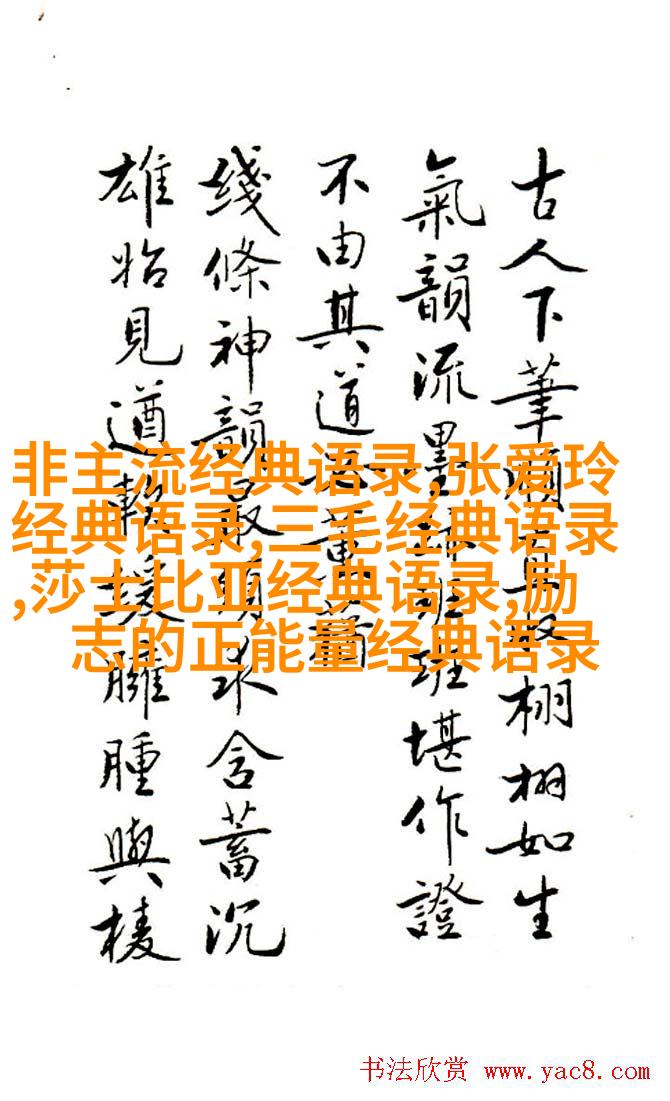 古人下筆栩栩如生
氣韻流墨班堪作證
不由其道
綫條神韻最須求含蓄沉
雄始見遒臃腫與棱
非主流经典语录,张爱玲
经典语录,三毛经典语录
,莎士比亚经典语录,励
志的正能量经典语录
书法欣赏 www.yac8.com